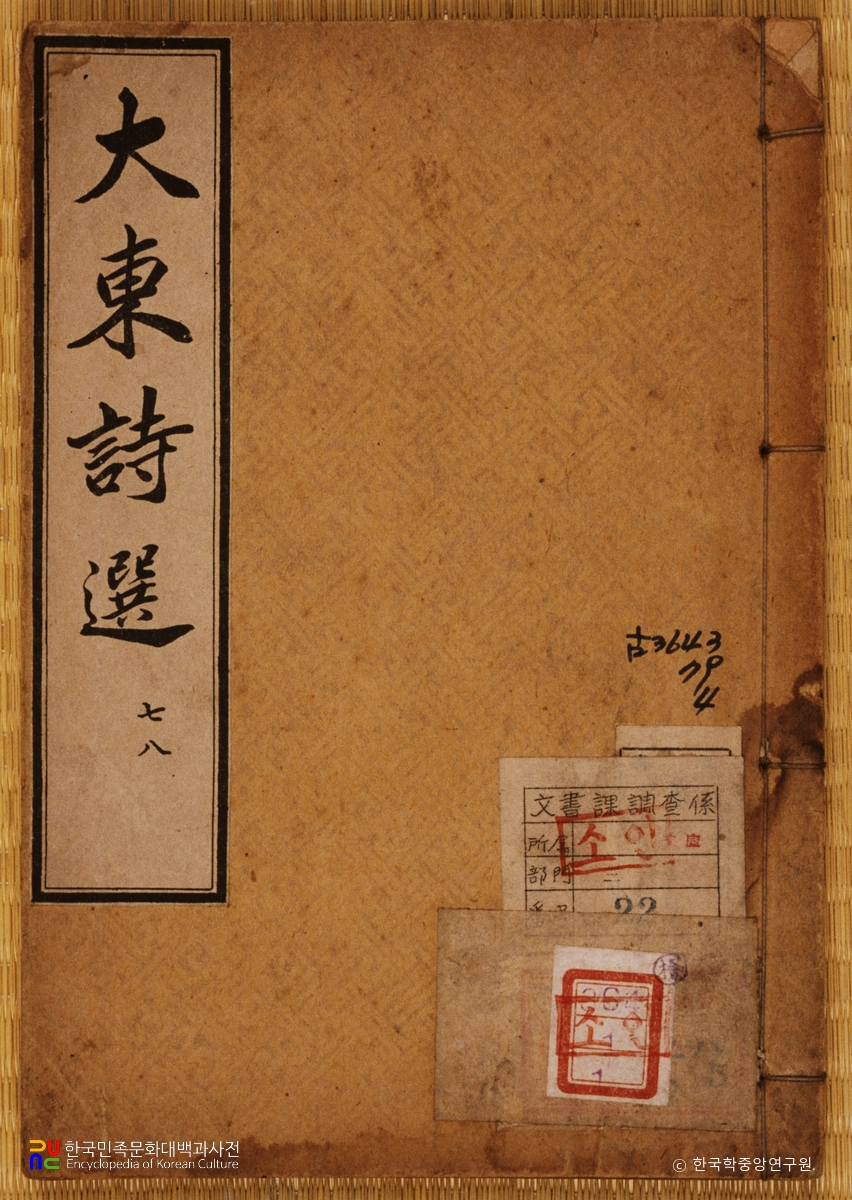 大東詩選
七
八
古3643
79
4
文書課調査係
所屬
部門
소인
二
22
소인
1
한국민족문화대백과사전
Encyclopedia of Korean Culture
© 한국학중앙연구원.